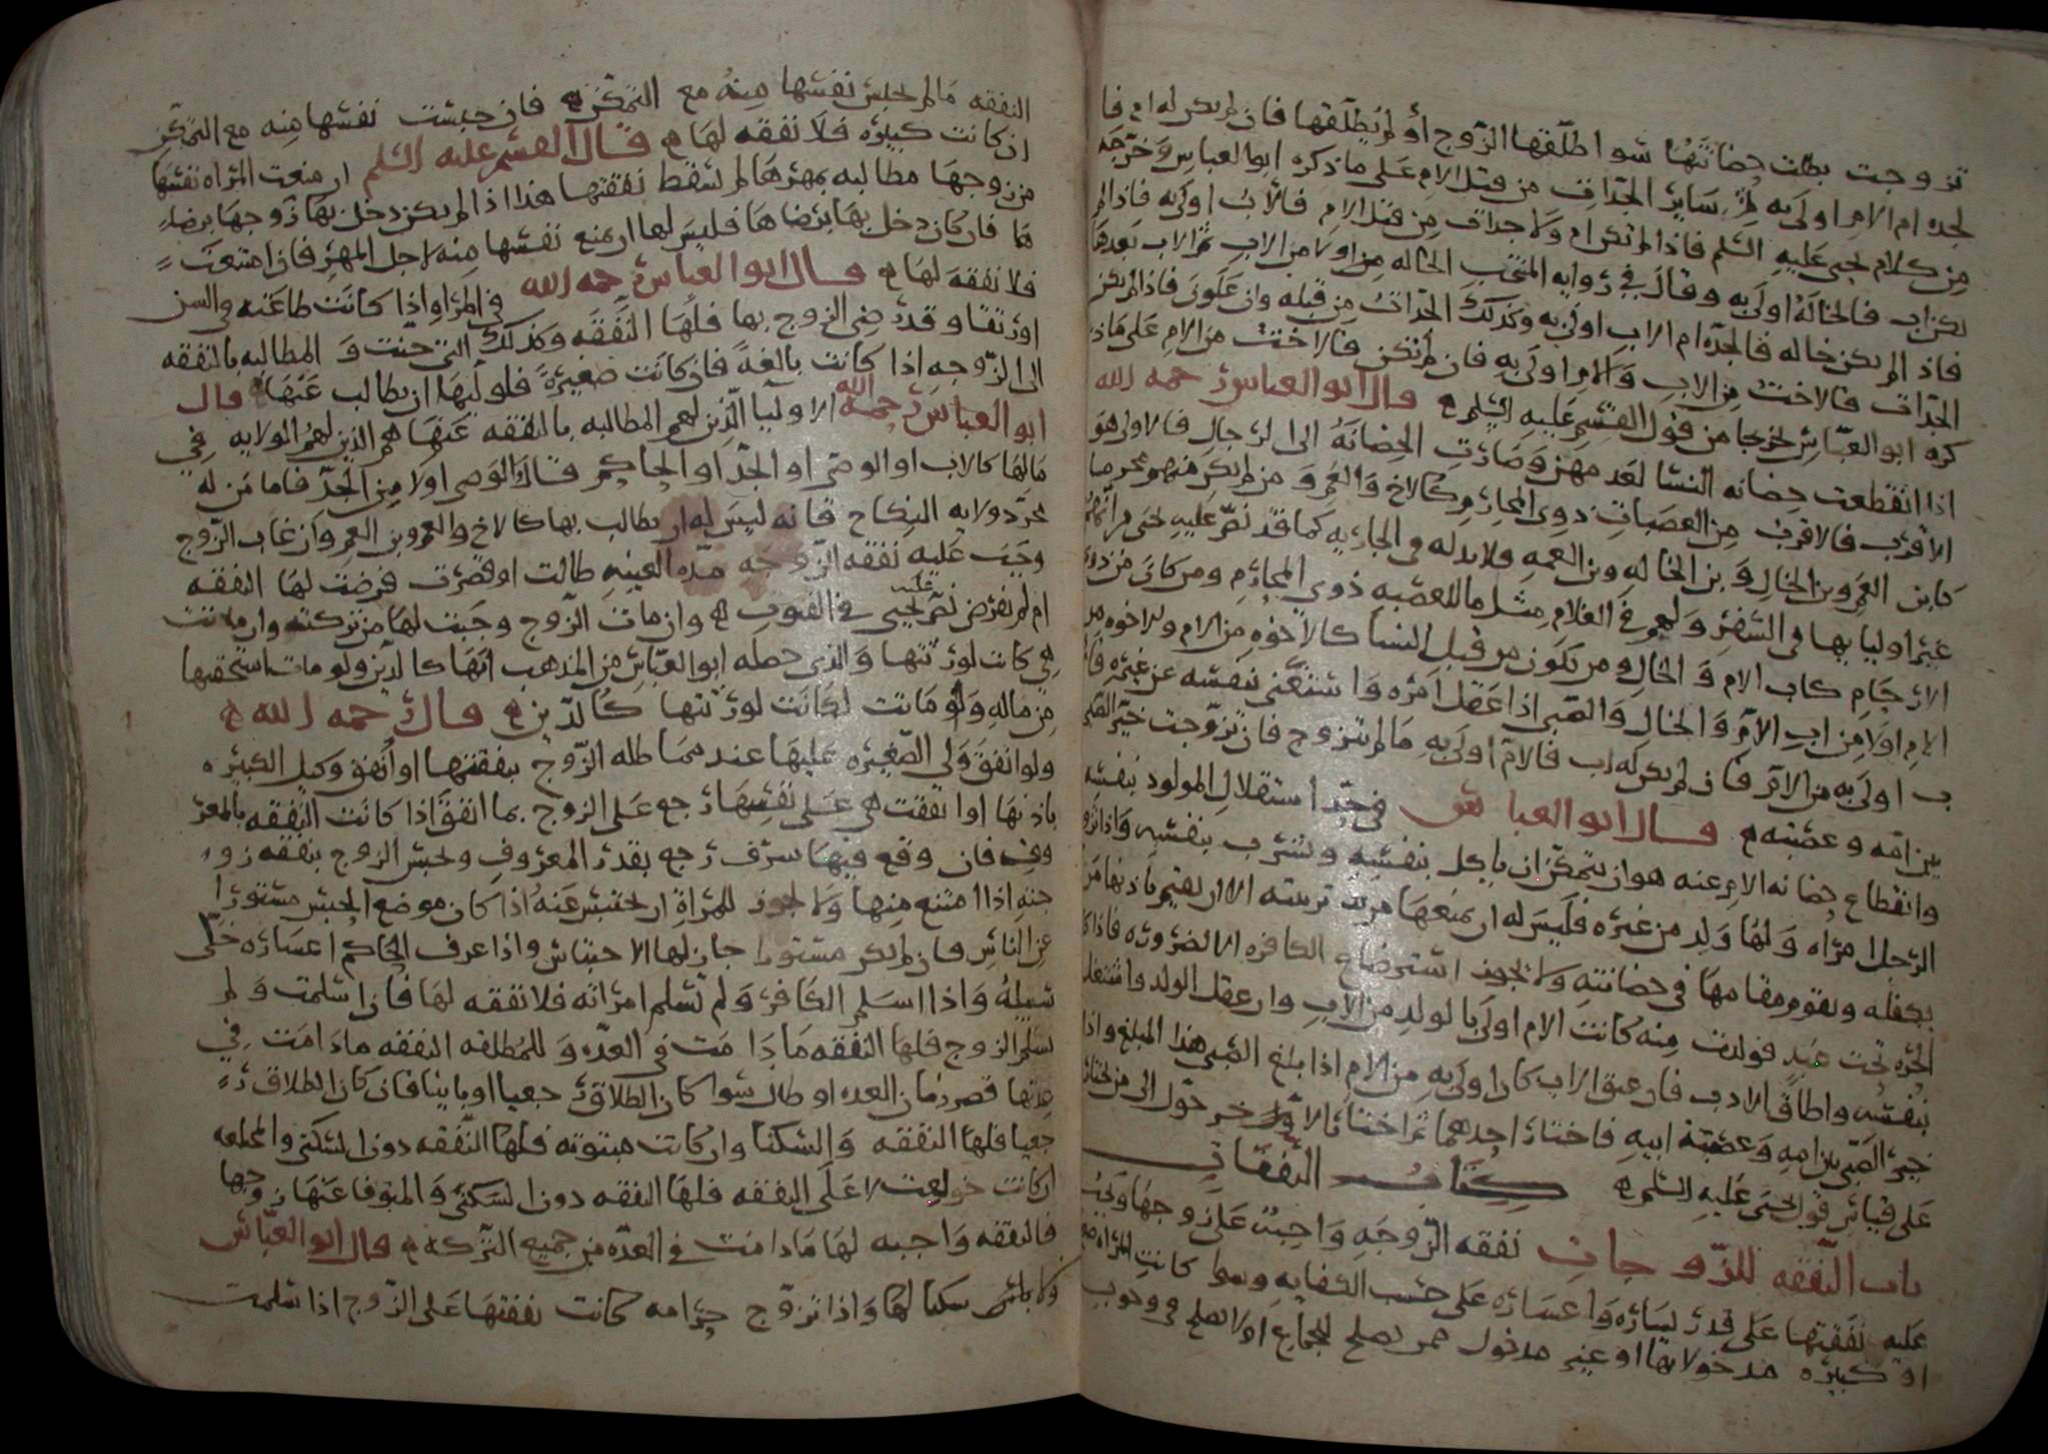 تزوجت بطلت حضانتها سوا طلقها الزوج أو لم يطلقها فان لم يكن له ام فا
لجده ام الام اولى به ثم سائر الجدات من قبل الام على ما ذكره ابو العباس وخرجه
من كلام يحيى عليه السلم فاذا لم تكن ام ولا جدات من قبل الام فالاب اولى به فاذا لم
يكن اب فالخالة اولى به وقال في روايه المنتخب الخاله من اولا من الاب ثم الاب بعدها
فاذا لم يكن خاله فالجده ام الاب اولى به وكذلك الجدات من قبله وان علون فاذا لم يكن
الجدات فالاخت من الاب والام اولى به فان لم تكن فالاخت من الام على ماذ
كره ابو العباس تخرجا من قول القسم عليه السلم قال ابو العباس رحمه الله
اذا انقطعت حضانه النسا لعدمهن وصارت الحضانة الى الرجال فالاولى هو
الاقرب فالاقرب من العصبات ذوي المحارم كالاخ والعم ومن لم يكن منهم محرما
كابن العم وبن الخال وبن الخاله وبن العمه ولا بد له في الجاريه كما قد نص عليه يحيى في انكاح
غير اوليايها في السفر ولهم في الغلام مثل ما للعصبه ذوي المحارم ومن كان من ذوي
الارحام كاب الام والخال ومن يكون من قبل النسا كالاخوه من الام
الام اولا من اب الام والخال والصبي اذا عقل امره واستغنى بنفسه عن غيره فالا
ب اولى به من الام فان لم يكن له اب فالام اولى به ما لم تتزوج فان تزوجت خير الصبي
بين امه وعصبته قال ابو العباس في حد استقلال المولود بنفسه
وانقطاع حضانه الام عنه هو ان يتمكن ان ياكل بنفسه ويشرب بنفسه واذا تزوج
الرجل امراه ولها ولد من غيره فليس له ان يمنعها من تربيته الا ان يقيم باذنها من
يكفله ويقوم مقامها في حضانته ولا يجوز استرضاع الكافره الا لضروره فاذا كا
الحره تحت عبد فولدت منه كانت الام اولى بالولد من الاب وان عقل الولد واشتغل
بنفسه واطاق الادب فان عتق الاب كان اولى به من الام اذا بلغ الصبي هذا المبلغ واذا
خير الصبي بين امه وعصبة ابيه فاختار احدهما ثم اختار الاخر حول الى من اختار
على قياس قول يحيى عليه السلم كتاب النفقات
باب النفقه للزوجات نفقه الزوجه واجبة على زوجها وتجب
عليه نفقتها على قدر يساره واعساره على حسب الكفايه وسوا كانت المراه
او كبيره مدخولا بها او غير مدخول ممن يصلح للجماع اولا يصلح في وجوب
النفقه ما لم تحبس نفسها منه مع التمكن فان حبست نفسها منه مع التمكن
ان كانت كبيره فلا نفقه لها قال القسم عليه السلم ان منعت المراه نفسها
من زوجها مطالبه بمهرها لم تسقط نفقتها هذا اذا لم يكن دخل بها زوجها برضا
ها فان كان دخل بها برضاها فليس لها ان تمنع نفسها منه لاجل المهر فان امتنعت
فلا نفقه لها قال ابو العباس رحمه الله في المراه اذا كانت طاعنه في السن
او رتقا وقد رضي الزوج بها فلها النفقه وكذلك التي جنت والمطالبه بالنفقه
الى الزوجه اذا كانت بالغة فان كانت صغيرة فلوليها ان يطالب عنها قال
ابو العباس رحمه الله الاوليا الذين لهم المطالبه بالنفقه عنها هم الذين لهم الولايه في
مالها كالاب او الوصى او الجد او الحاكم قال والوصى اولا من الجد فاما من له
مجرد ولايه النكاح فانه ليس له ان يطالب بها كالاخ والعم وبن العم وان غاب الزوج
وجبت عليه نفقه الزوجه مده الغيبه طالت او قصرت فرضت لها النفقه
ام لم تفرض نص عليه يحيى في الفنون وان مات الزوج وجبت لها من تركته وان ماتت
هي كانت لورثتها والذي حصله ابو العباس من المذهب انها كالدين ولو مات استحقتها
من ماله ولو ماتت لكانت لورثتها كالدين قال رحمه الله
ولو انفق ولي الصغيره عليها عند مماطله الزوج بنفقتها او انفق وكيل الكبيره
باذنها او انفقت هي على نفسها رجع على الزوج بما انفق اذا كانت النفقه بالمعر
وف فان وقع فيها سرف رجع بقدر المعروف ويحبس الزوج بنفقه زو
جته اذا امتنع منها ولا يجوز للمراة ان تحتبس عنه اذا كان موضع الحبس مستورا
عن الناس فان لم يكن مستورا جاز لها الاحتباس واذا عرف الحاكم اعساره خلى
سبيله واذا اسلم الكافر ولم تسلم امراته فلا نفقه لها فان اسلمت ولم
يسلم الزوج فلها النفقه ما دامت في العده وللمطلقه النفقه ما دامت في
عدتها قصر زمان العده او طال سوا كان الطلاق رجعيا او باينا فان كان الطلاق ر
جعيا فلها النفقه والسكنا وان كانت مبتوته فلها النفقه دون السكنى والمختلعه
ان كانت خولعت لا على النفقه فلها النفقه دون السكنى والمتوفا عنها زوجها
فالنفقه واجبه لها ما دامت في العده من جميع التركه قال ابو العباس
ولا سكنا لها واذا تزوج حر امه كانت نفقتها على الزوج اذا سلمت